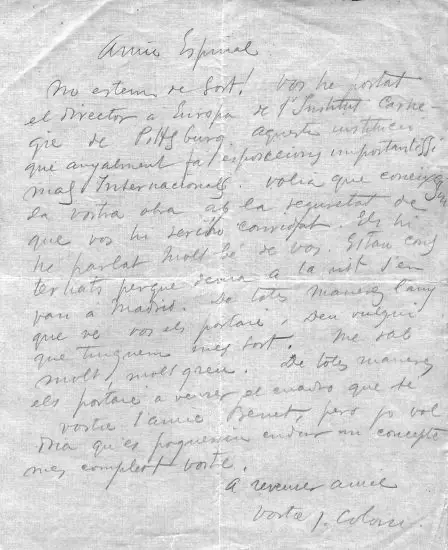 Amic Espinal
No estem de Sort! Vos he portat
el director a Europa de l'Institut Carne
gie de Pittsburg. Aquesta institucio
que anyalment fa exposicions importantissi
mas Internacionals. volia que conegues
la vostra obra ab la seguretat de
que vos hi seria convidat. Els hi
he parlat molt bé de vos. Estan cons
ternats perque a la nit s'en
van a Madrid. De totes maneres l'any
que ve vos els portaré, Deu vulgui
que tinguem mes sort. Me sab
molt, molt greu. De totes maneres
els portaré a veurer el cuadro que te
vostre l'amic Benet, pero jo vol
dria qu'es poguessin endur un concepte
mes complert vostre.
A reveurer amic
Vostre J. Colom